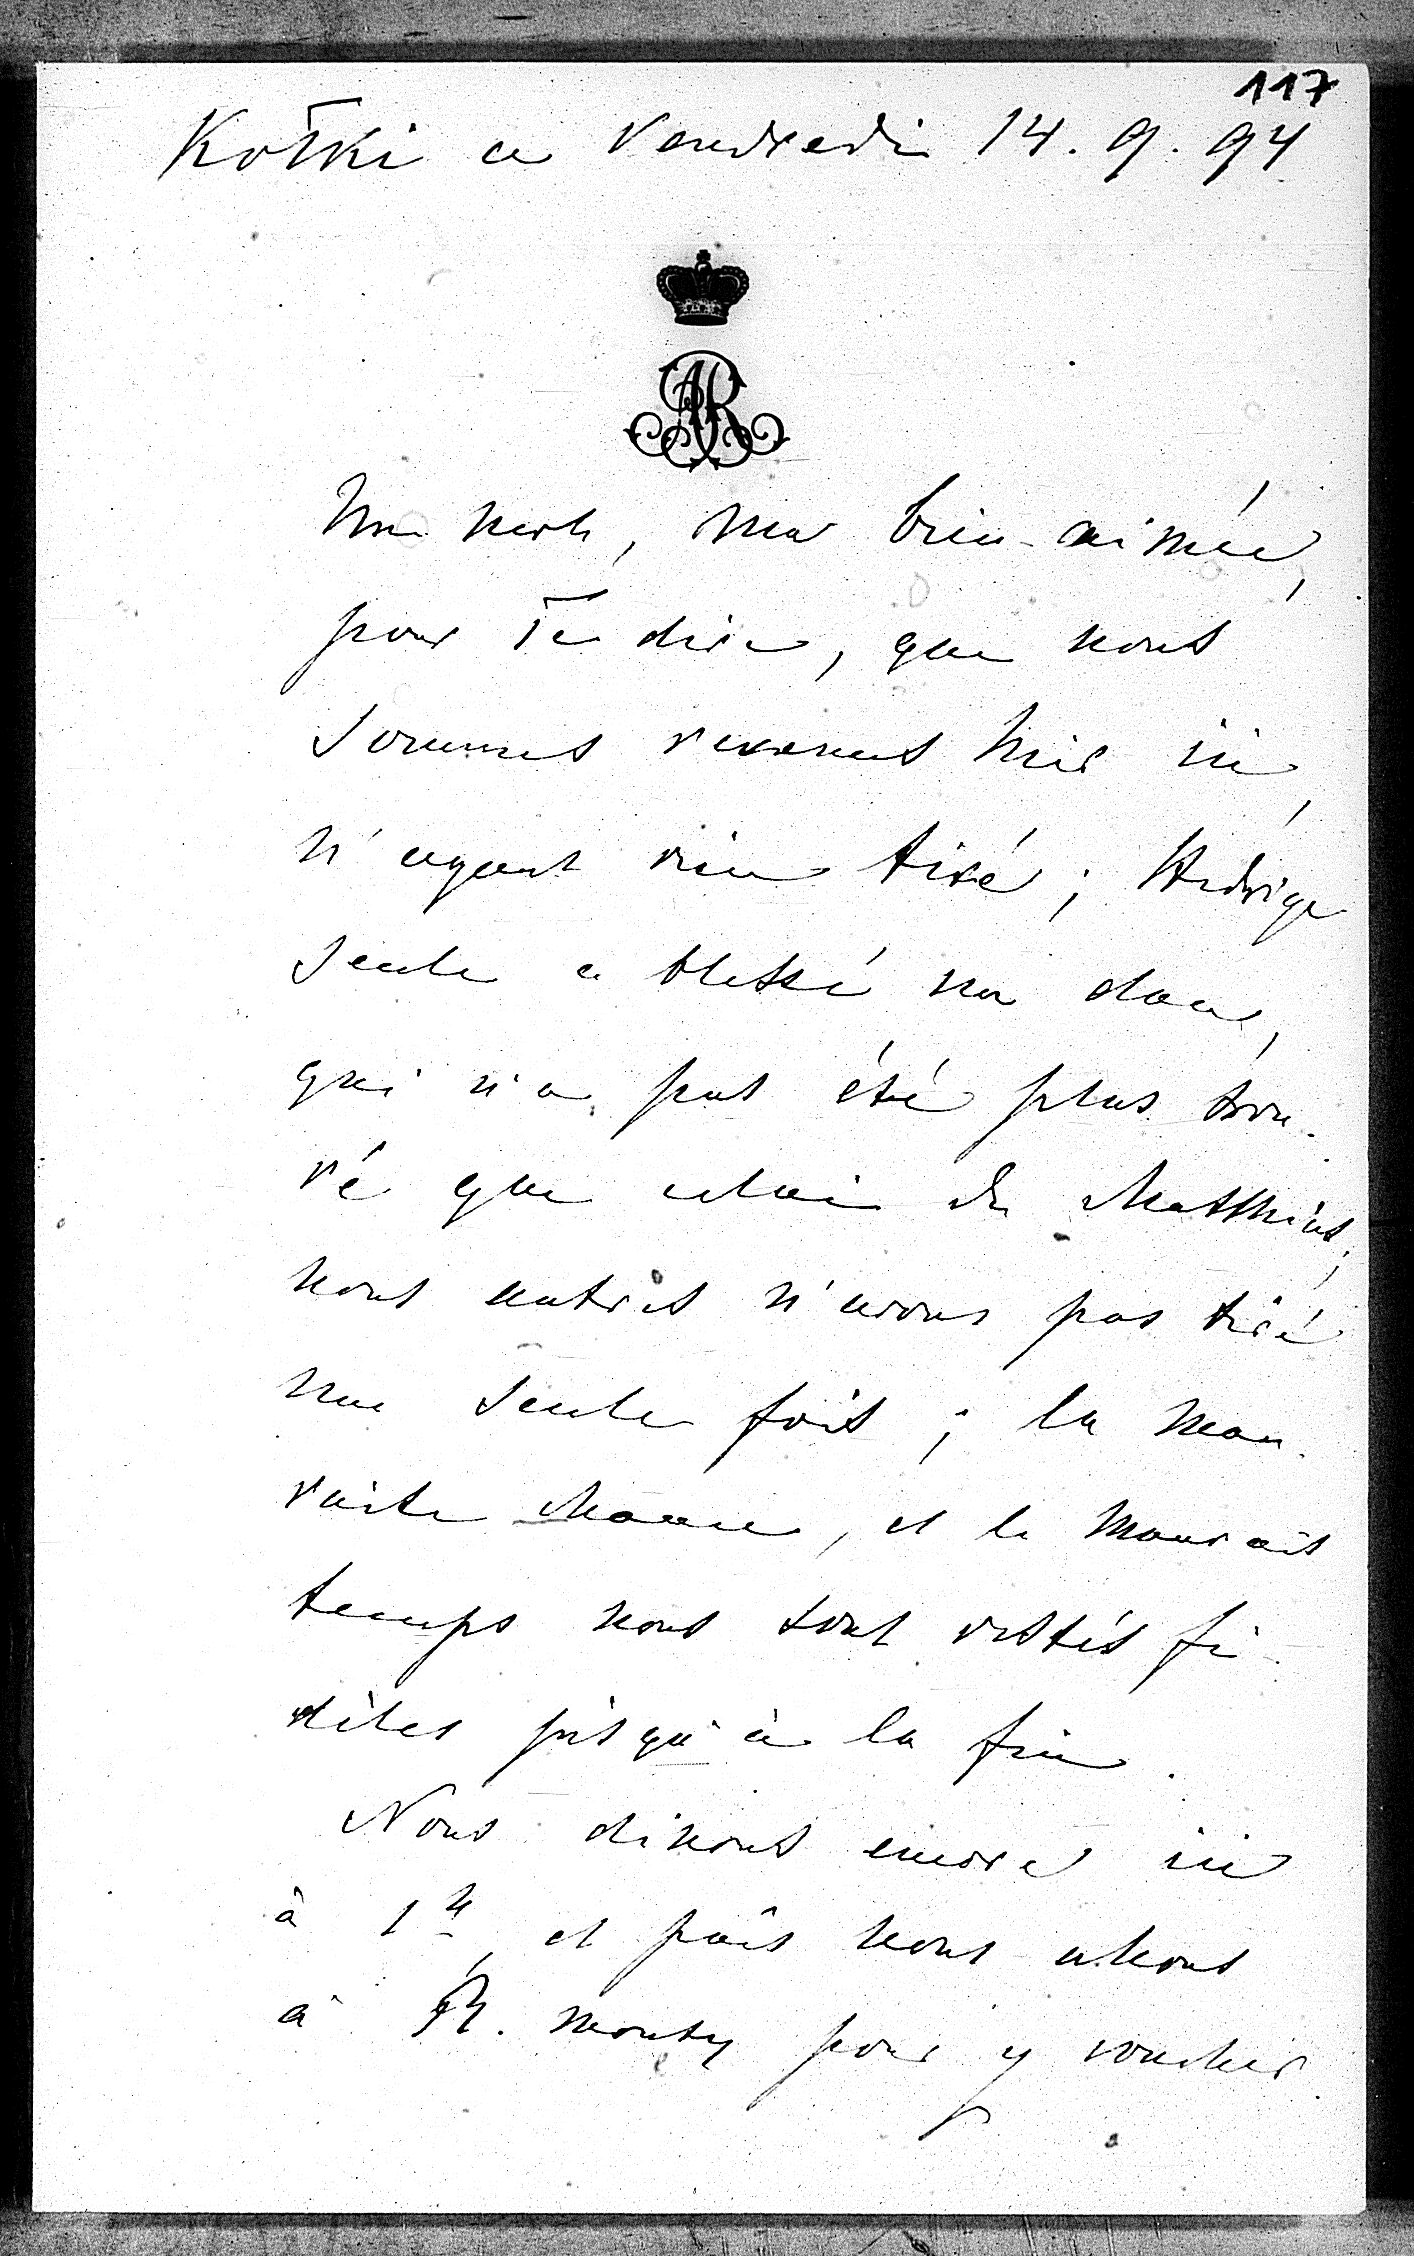 117
Kołki ce Vendredi 14.9.94
Un mot, ma bien-aimée,
pour Te dire, que nous
sommes revenus hier ici,
n'ayant rien tiré; Hedwige
seule a blessé un daim,
qui n'a pas été plus trou-
vé que celui de Matthias;
nous autres n'avons pas tiré
une seule fois; la mau-
vaise chance, et le mauvais
temps nous sont restés fi-
dèles jusqu'à la fin.
Nous dînons encore ici
à 1h, et puis nous allons
à mouty pour y coucher.